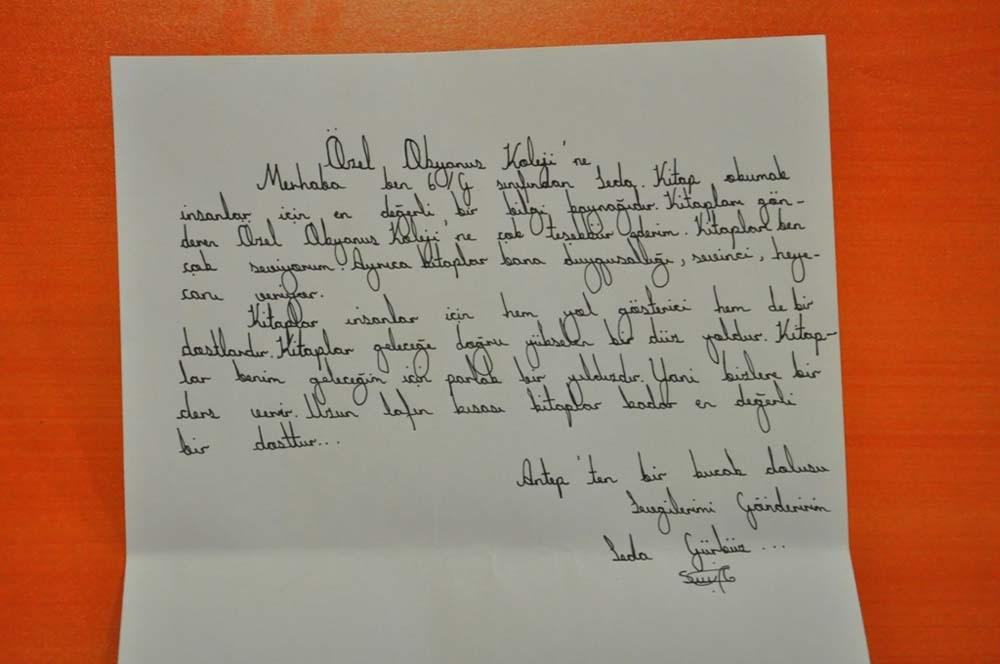 Özel Okyanus Koleji'ne
Merhaba ben 6/G sınıfından Seda. Kitap okumak
insanlar için en değerli bir bilgi kaynağıdır. Kitapları gön-
deren Özel Okyanus Koleji'ne çok teşekkür ederim. Kitapları ben
çok seviyorum. Ayrıca kitaplar bana duygusallığı, sevinci, heye-
canı veriyor.
Kitaplar insanlar için hem yol gösterici hem de bir
dostlardır. Kitaplar geleceğe doğru yükselen bir düz yoldur. Kitap-
lar benim geleceğim için parlak bir yıldızdır. Yani bizlere bir
ders verir. Uzun lafın kısası kitaplar kadar en değerli
bir dosttur...
Antep'ten bir kucak dolusu
Sevgilerimi Gönderirim
Seda Gürbüz...